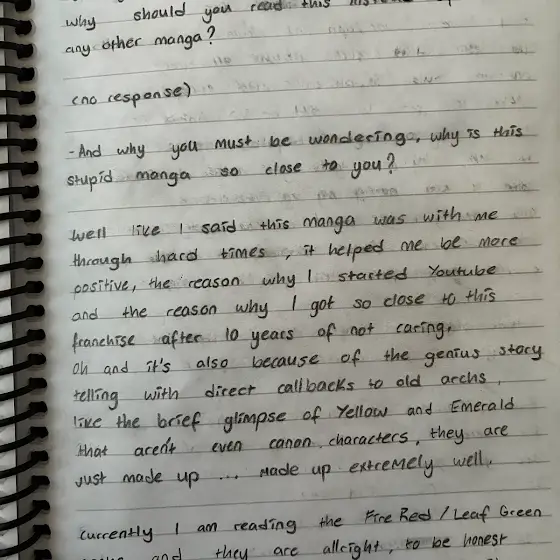 why should you read this
any other manga?
(no response)
-And why you must be wondering, why is this
stupid manga so close to you?
well like I said this manga was with me
through hard times, it helped me be more
positive, the reason why I started Youtube
and the reason why I got so close to this
franchise after 10 years of not caring,
Oh and it's also because of the genius story
telling with direct callbacks to old archs,
like the brief glimpse of Yellow and Emerald
that aren't even canon characters, they are
Just made up ... Made up extremely well,
Currently I am reading the Fire Red / Leaf Green
and they are allright, to be honest